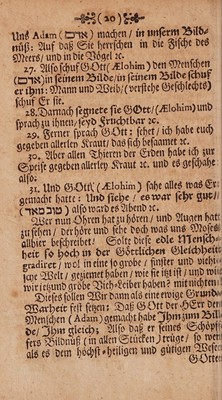 ( 20 )
Uns Adam (אדם) machen / in unserm Bild-
nüß: Auf daß Sie herrschen in die Fische des
Meers / und in die Vögel ꝛc.
27. Also schuf GOtt / (Ælohim) den Menschen
(אדם) in seinem Bilde / in seinem Bilde schuf
er ihn: Mann und Weib / (verstehe Geschlechts)
schuf Er sie.
28. Darnach segnete sie GOtt / (Ælohim) und
sprach zu ihnen / seyd Fruchtbar ꝛc.
29. Ferner sprach GOtt: sehet / ich habe euch
gegeben allerley Kraut / das sich besaamet ꝛc.
30. Aber allen Thieren der Erden habe ich zur
Speise gegeben allerley Kraut ꝛc. und es geschahe
also.
31. Und GOtt / (Ælohim) sahe alles was Er
gemacht hatte: Und siehe / es war sehr gut /
(טוב מאד) also ward es Abend ꝛc.
Wer nun Ohren hat zu hören / und Augen hat
zu sehen / der höre und sehe doch was uns Moses
allhier beschreibet / Solte diese edle Mensch-
heit so hoch in der Göttlichen Gleichheit
gradiret / wol in eine so grobe / finster und viehi-
sche Welt / geziemet haben / wie sie itzt ist / und wie
wir jetzund grobe Vieh-Leiber haben? mit nichten.
Dieses sollen Wir dann als eine ewige Grund-
Warheit fest setzen: Daß GOtt der HErr den
Menschen (Adam) gemacht habe Ihm zum Bil-
de / Ihm gleich; Also daß er seines Schöpf-
fers Bildnüß / in allen Stücken / trüge / so wohl
als es dem höchst-heiligen und gütigen Wesen
GOttes